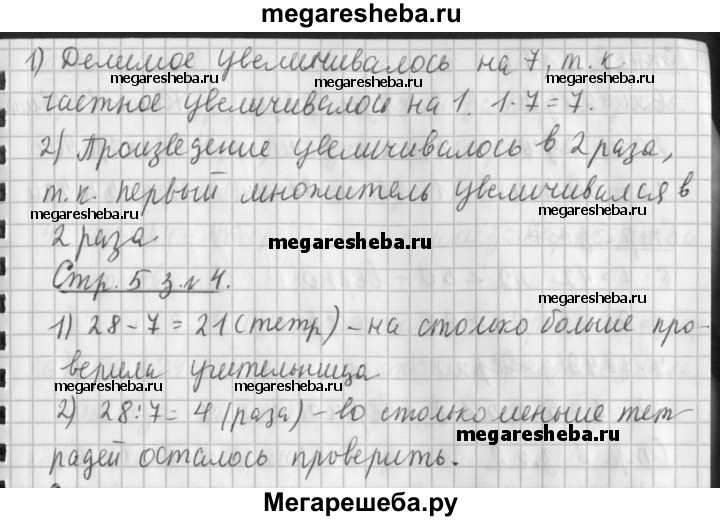 megaresheba.ru
1) Делимое увеличивалось на 7, т.к.
megaresheba.ru megaresheba.ru megaresheba.ru
частное увеличивалось на 1. 1·7=7.
megaresheba.ru
2) Произведение увеличивалось в 2 раза,
т.к. первый множитель увеличивался в
megaresheba.ru megaresheba.ru
2 раза.
megaresheba.ru
Стр. 5 з. № 4.
megaresheba.ru
1) 28-7=21 (тетр) - на столько больше про-
верила учительница
megaresheba.ru megaresheba.ru
2) 28:7=4 (раза) - во столько меньше тет
megaresheba.ru
радей осталось проверить.
Мегарешеба.ру